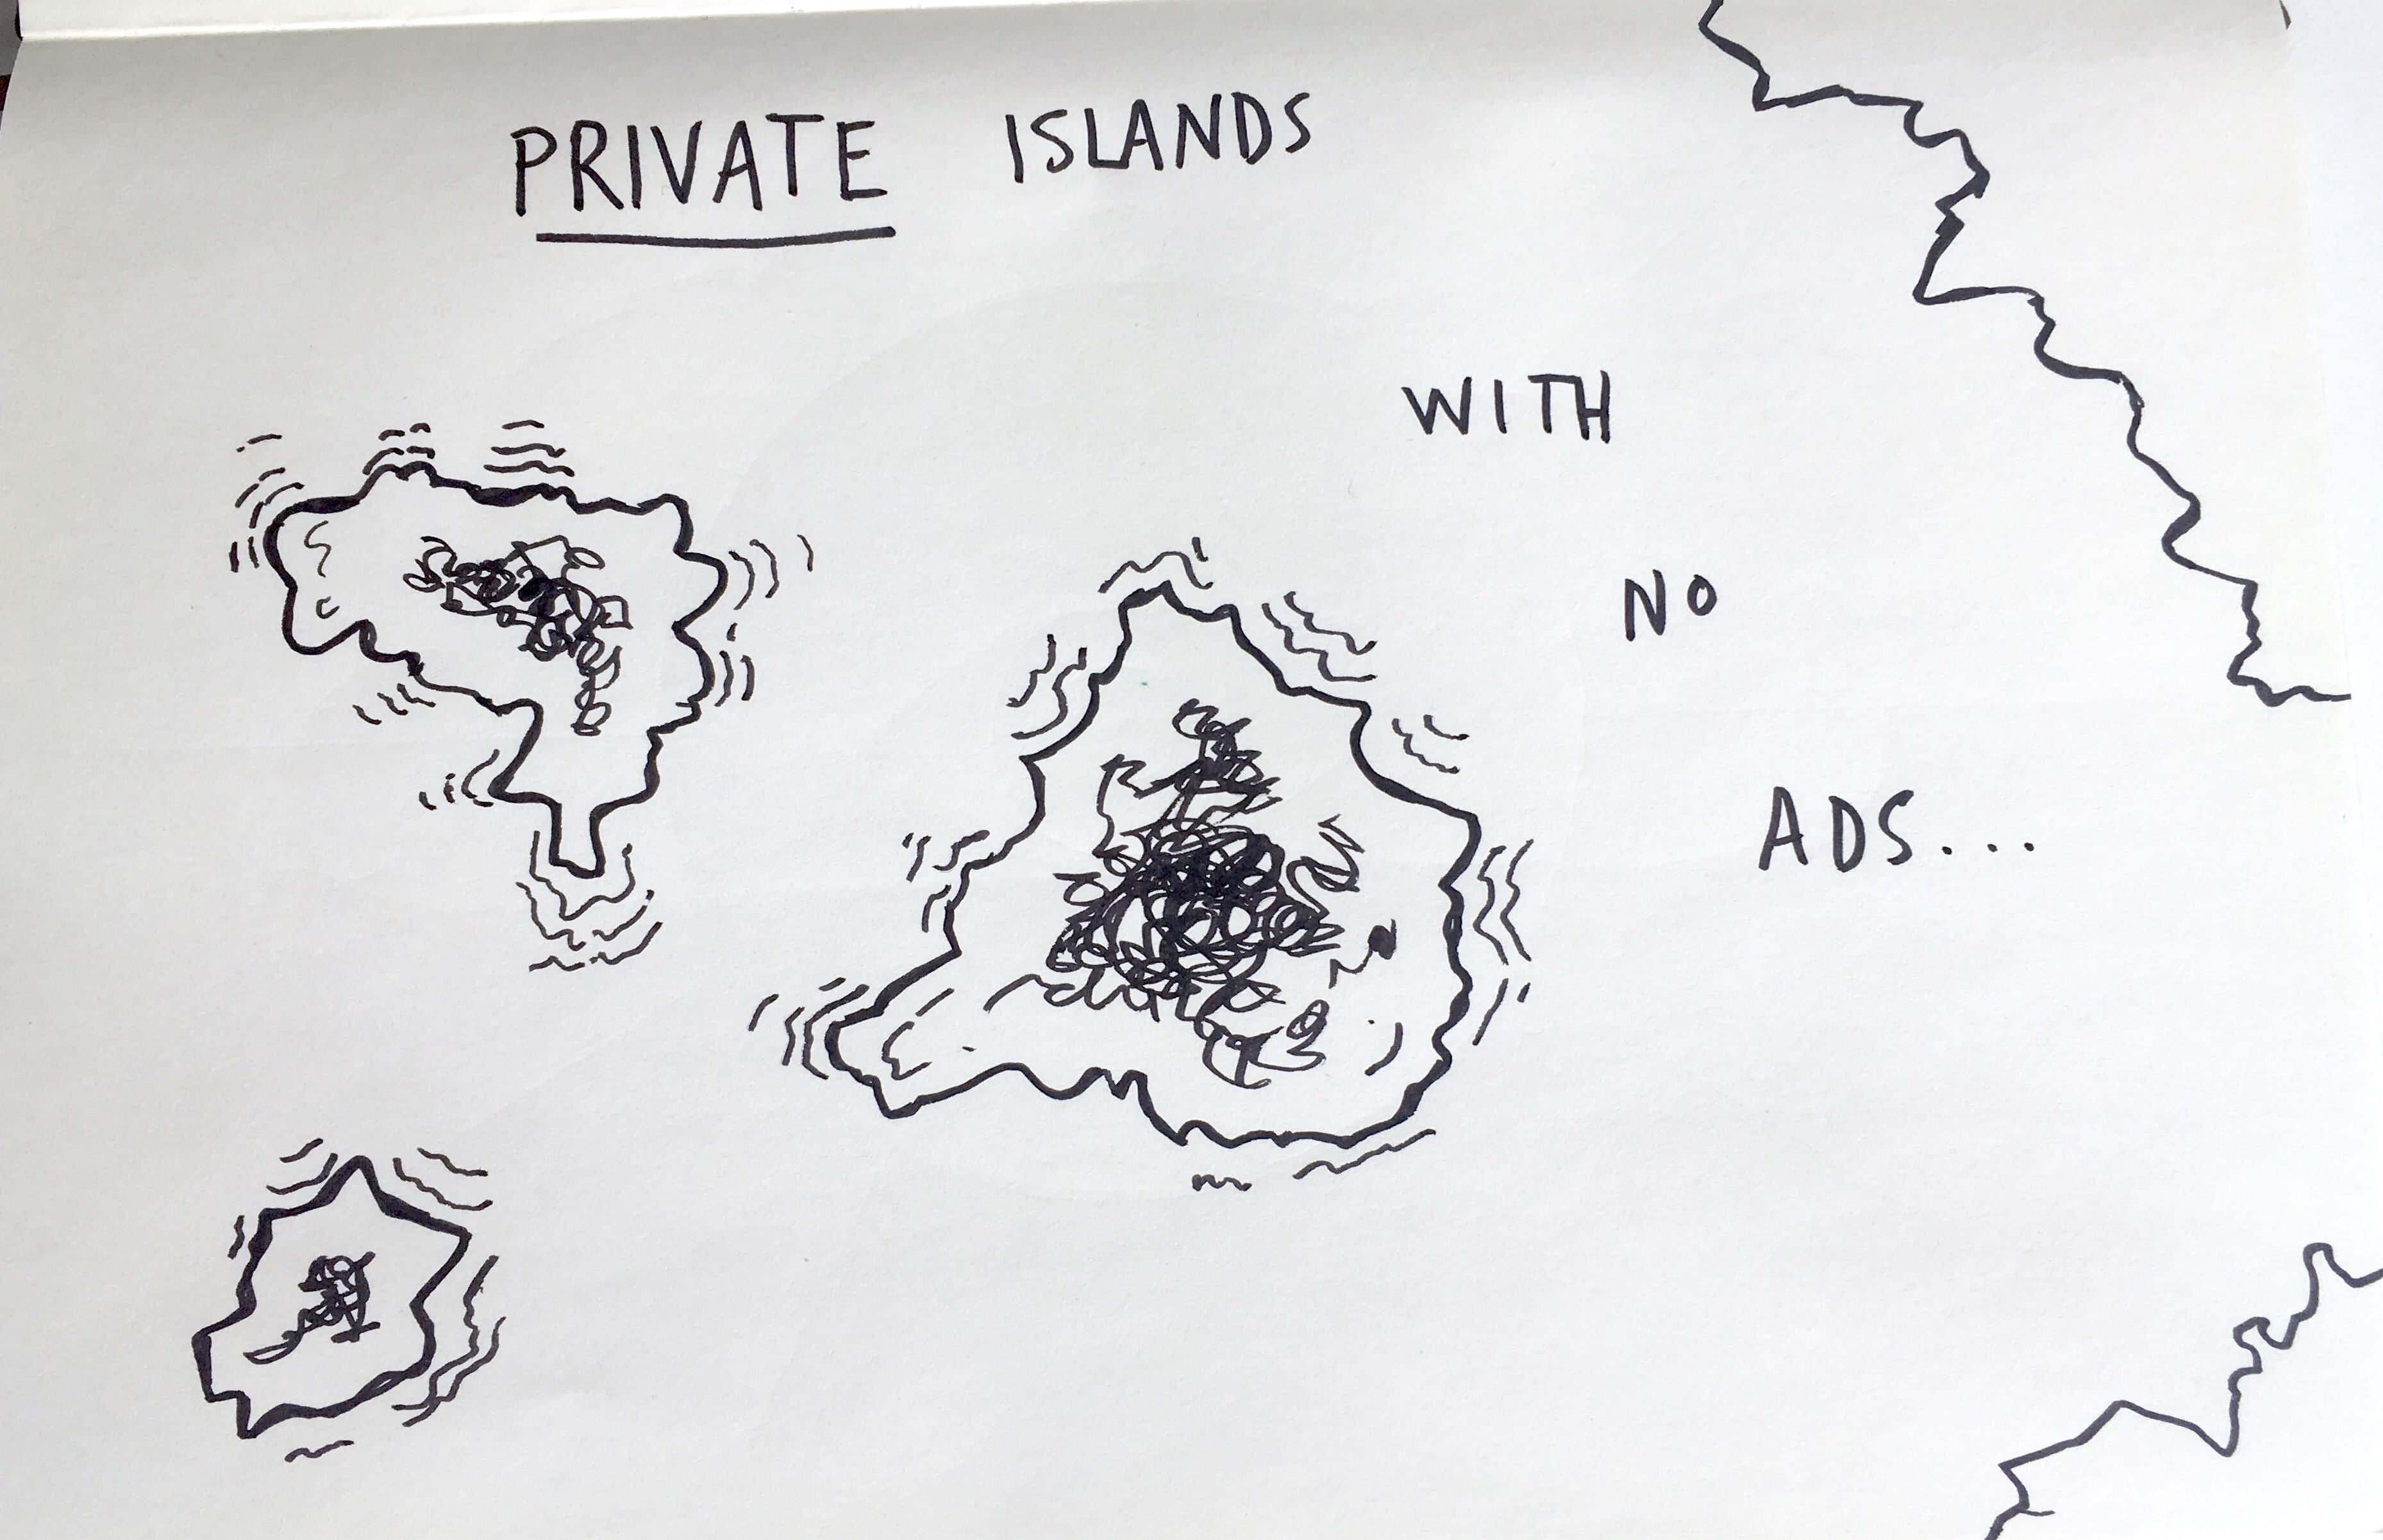 PRIVATE ISLANDS
WITH
NO
ADS...